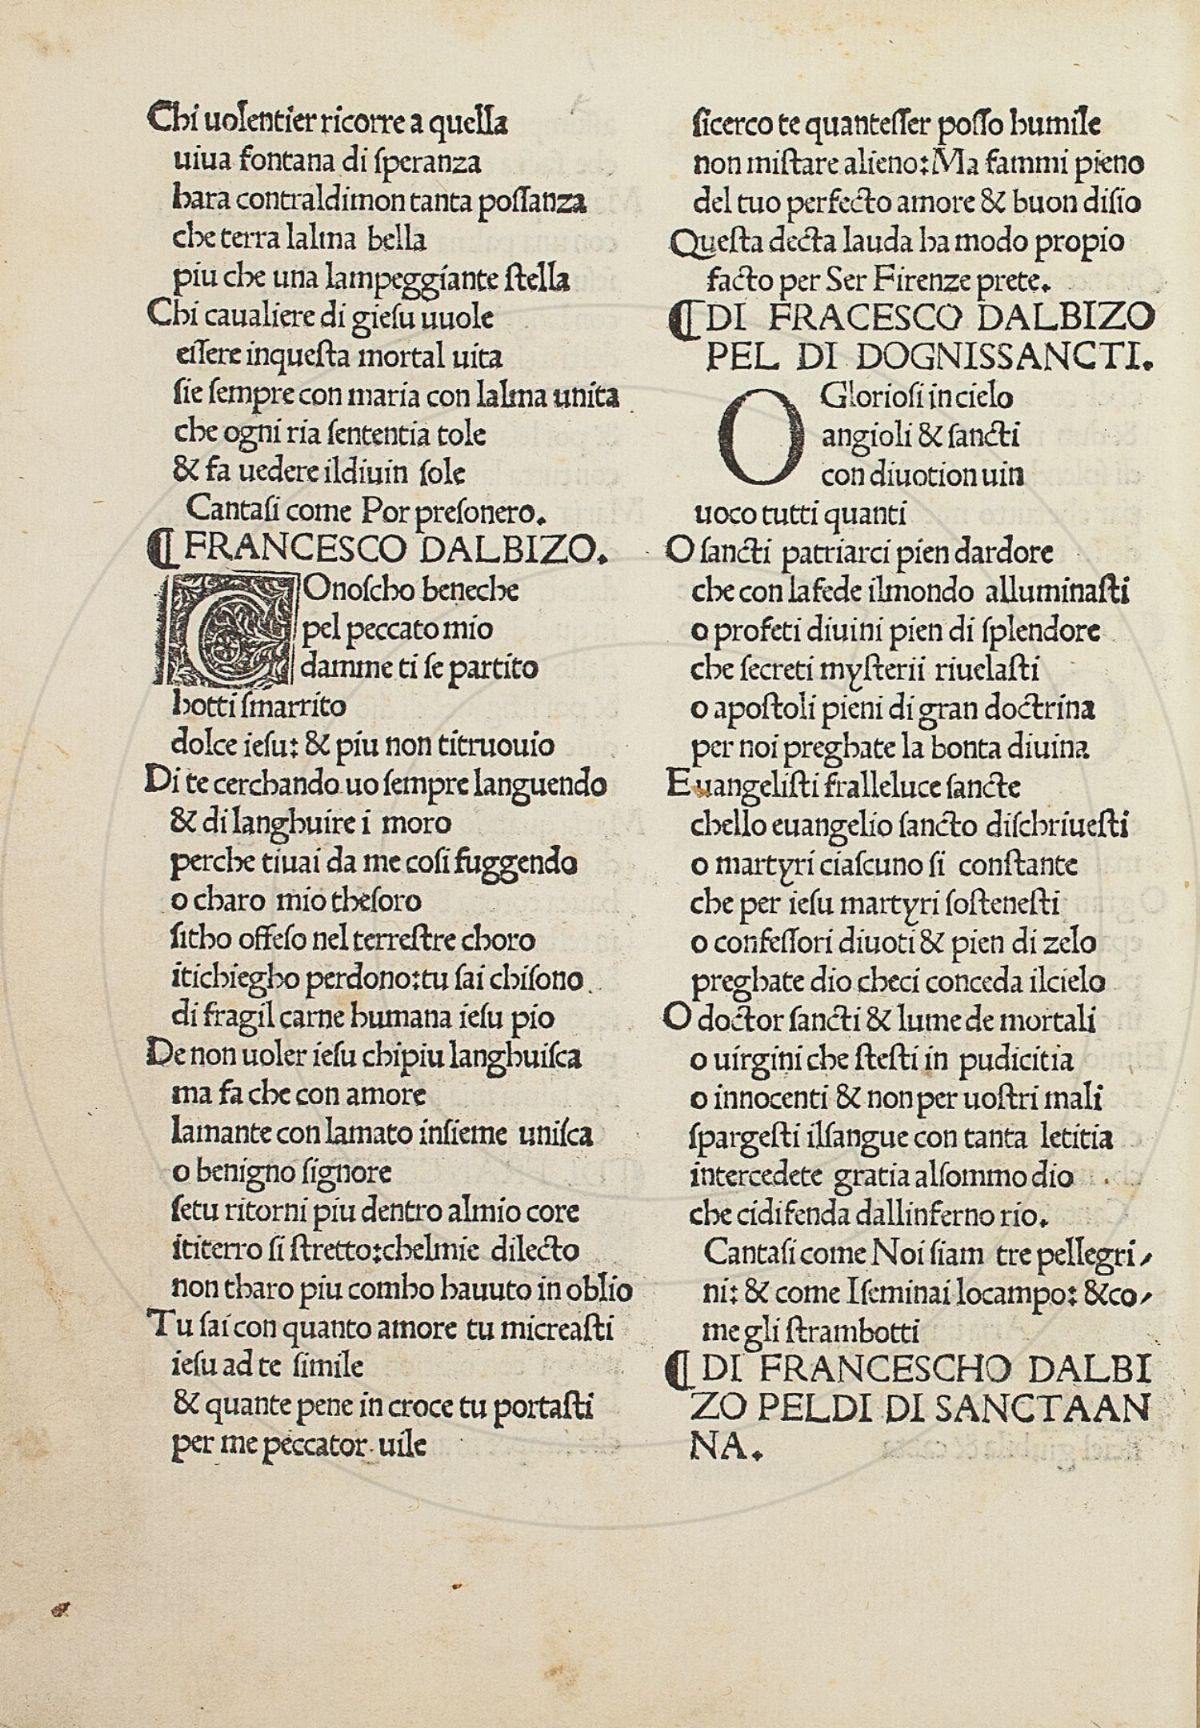 Chi uolentier ricorre a quella
uiua fontana di ſperanza
hara contraldimon tanta poſſanza
che terra lalma bella
piu che una lampeggiante ſtella
Chi caualiere di gieſu uuole
eſſere inqueſta mortal uita
ſie ſempre con maria con lalma unita
che ogni ria ſententia tole
& fa uedere ildiuin ſole
Cantaſi come Por preſonero.
¶ FRANCESCO DALBIZO.
COnoſcho beneche
pel peccato mio
damme ti ſe partito
hotti ſmarrito
dolce ieſu: & piu non titruouio
Di te cerchando uo ſempre languendo
& di languire i moro
perche tiuai da me coſi fuggendo
o charo mio theſoro
ſitho offeſo nel terreſtre choro
itichiegho perdono:tu ſai chiſono
di fragil carne humana ieſu pio
De non uoler ieſu chipiu languiſca
ma fa che con amore
lamante con lamato inſieme uniſca
o benigno ſignore
ſetu ritorni piu dentro almio core
ititerro ſi ſtretto:chelmie dilecto
non tharo piu combo hauuto in oblio
Tu ſai con quanto amore tu micreaſti
ieſu ad te ſimile
& quante pene in croce tu portaſti
per me peccator uile
ſicerco te quanteſſer poſſo humile
non miſtare alieno:Ma fammi pieno
del tuo perfecto amore & buon diſio
Queſta decta lauda ha modo propio
facto per Ser Firenze prete.
¶ DI FRACESCO DALBIZO
PEL DI DOGNISSANCTI.
O Glorioſi in cielo
angioli & ſancti
con diuotion uin
uoco tutti quanti
O ſancti patriarci pien dardore
che con lafede ilmondo alluminaſti
o profeti diuini pien di ſplendore
che ſecreti myſterii riuelaſti
o apoſtoli pieni di gran doctrina
per noi preghate la bonta diuina
Euangeliſti fralleluce ſancte
chello euangelio ſancto diſchriueſti
o martyri ciaſcuno ſi conſtante
che per ieſu martyri ſoſteneſti
o confeſſori diuoti & pien di zelo
preghate dio checi conceda ilcielo
O doctor ſancti & lume de mortali
o uirgini che ſteſti in pudicitia
o innocenti & non per uoſtri mali
ſpargeſti ilſangue con tanta letitia
intercedete gratia alſommo dio
che cidifenda dallinferno rio.
Cantaſi come Noi ſiam tre pellegri⸗
ni: & come Iſeminai locampo: &co⸗
me gli ſtrambotti
¶ DI FRANCESCHO DALBI
ZO PELDI DI SANCTAAN
NA.